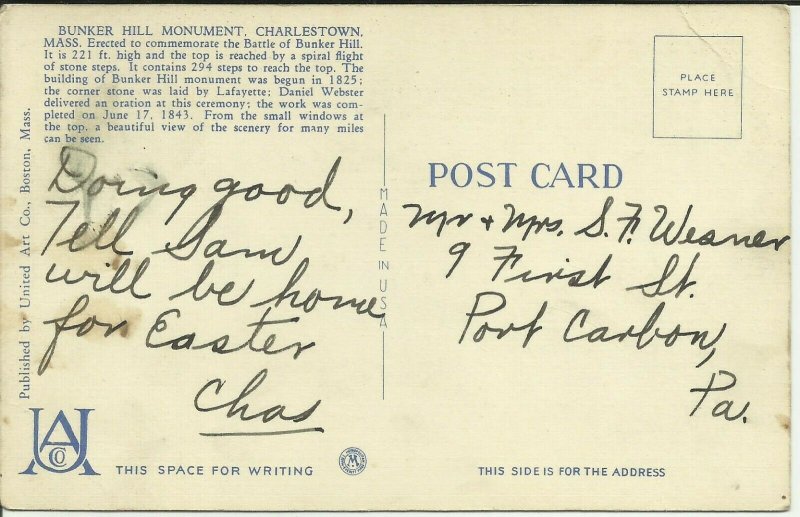 BUNKER HILL MONUMENT, CHARLESTOWN,
MASS. Erected to commemorate the Battle of Bunker Hill.
It is 221 ft. high and the top is reached by a spiral flight
of stone steps. It contains 294 steps to reach the top. The
building of Bunker Hill monument was begun in 1825;
the corner stone was laid by Lafayette; Daniel Webster
delivered an oration at this ceremony; the work was com-
pleted on June 17, 1843. From the small windows at
the top, a beautiful view of the scenery for many miles
can be seen.
Published by United Art Co., Boston, Mass.
Doing good,
Tell Sam
will be home
for Easter
Chas
UACo
THIS SPACE FOR WRITING
MADE IN USA
PLACE
STAMP HERE
POST CARD
Mr + Mrs. S. F. Wesner
9 First St.
Port Carbon,
Pa.
THIS SIDE IS FOR THE ADDRESS